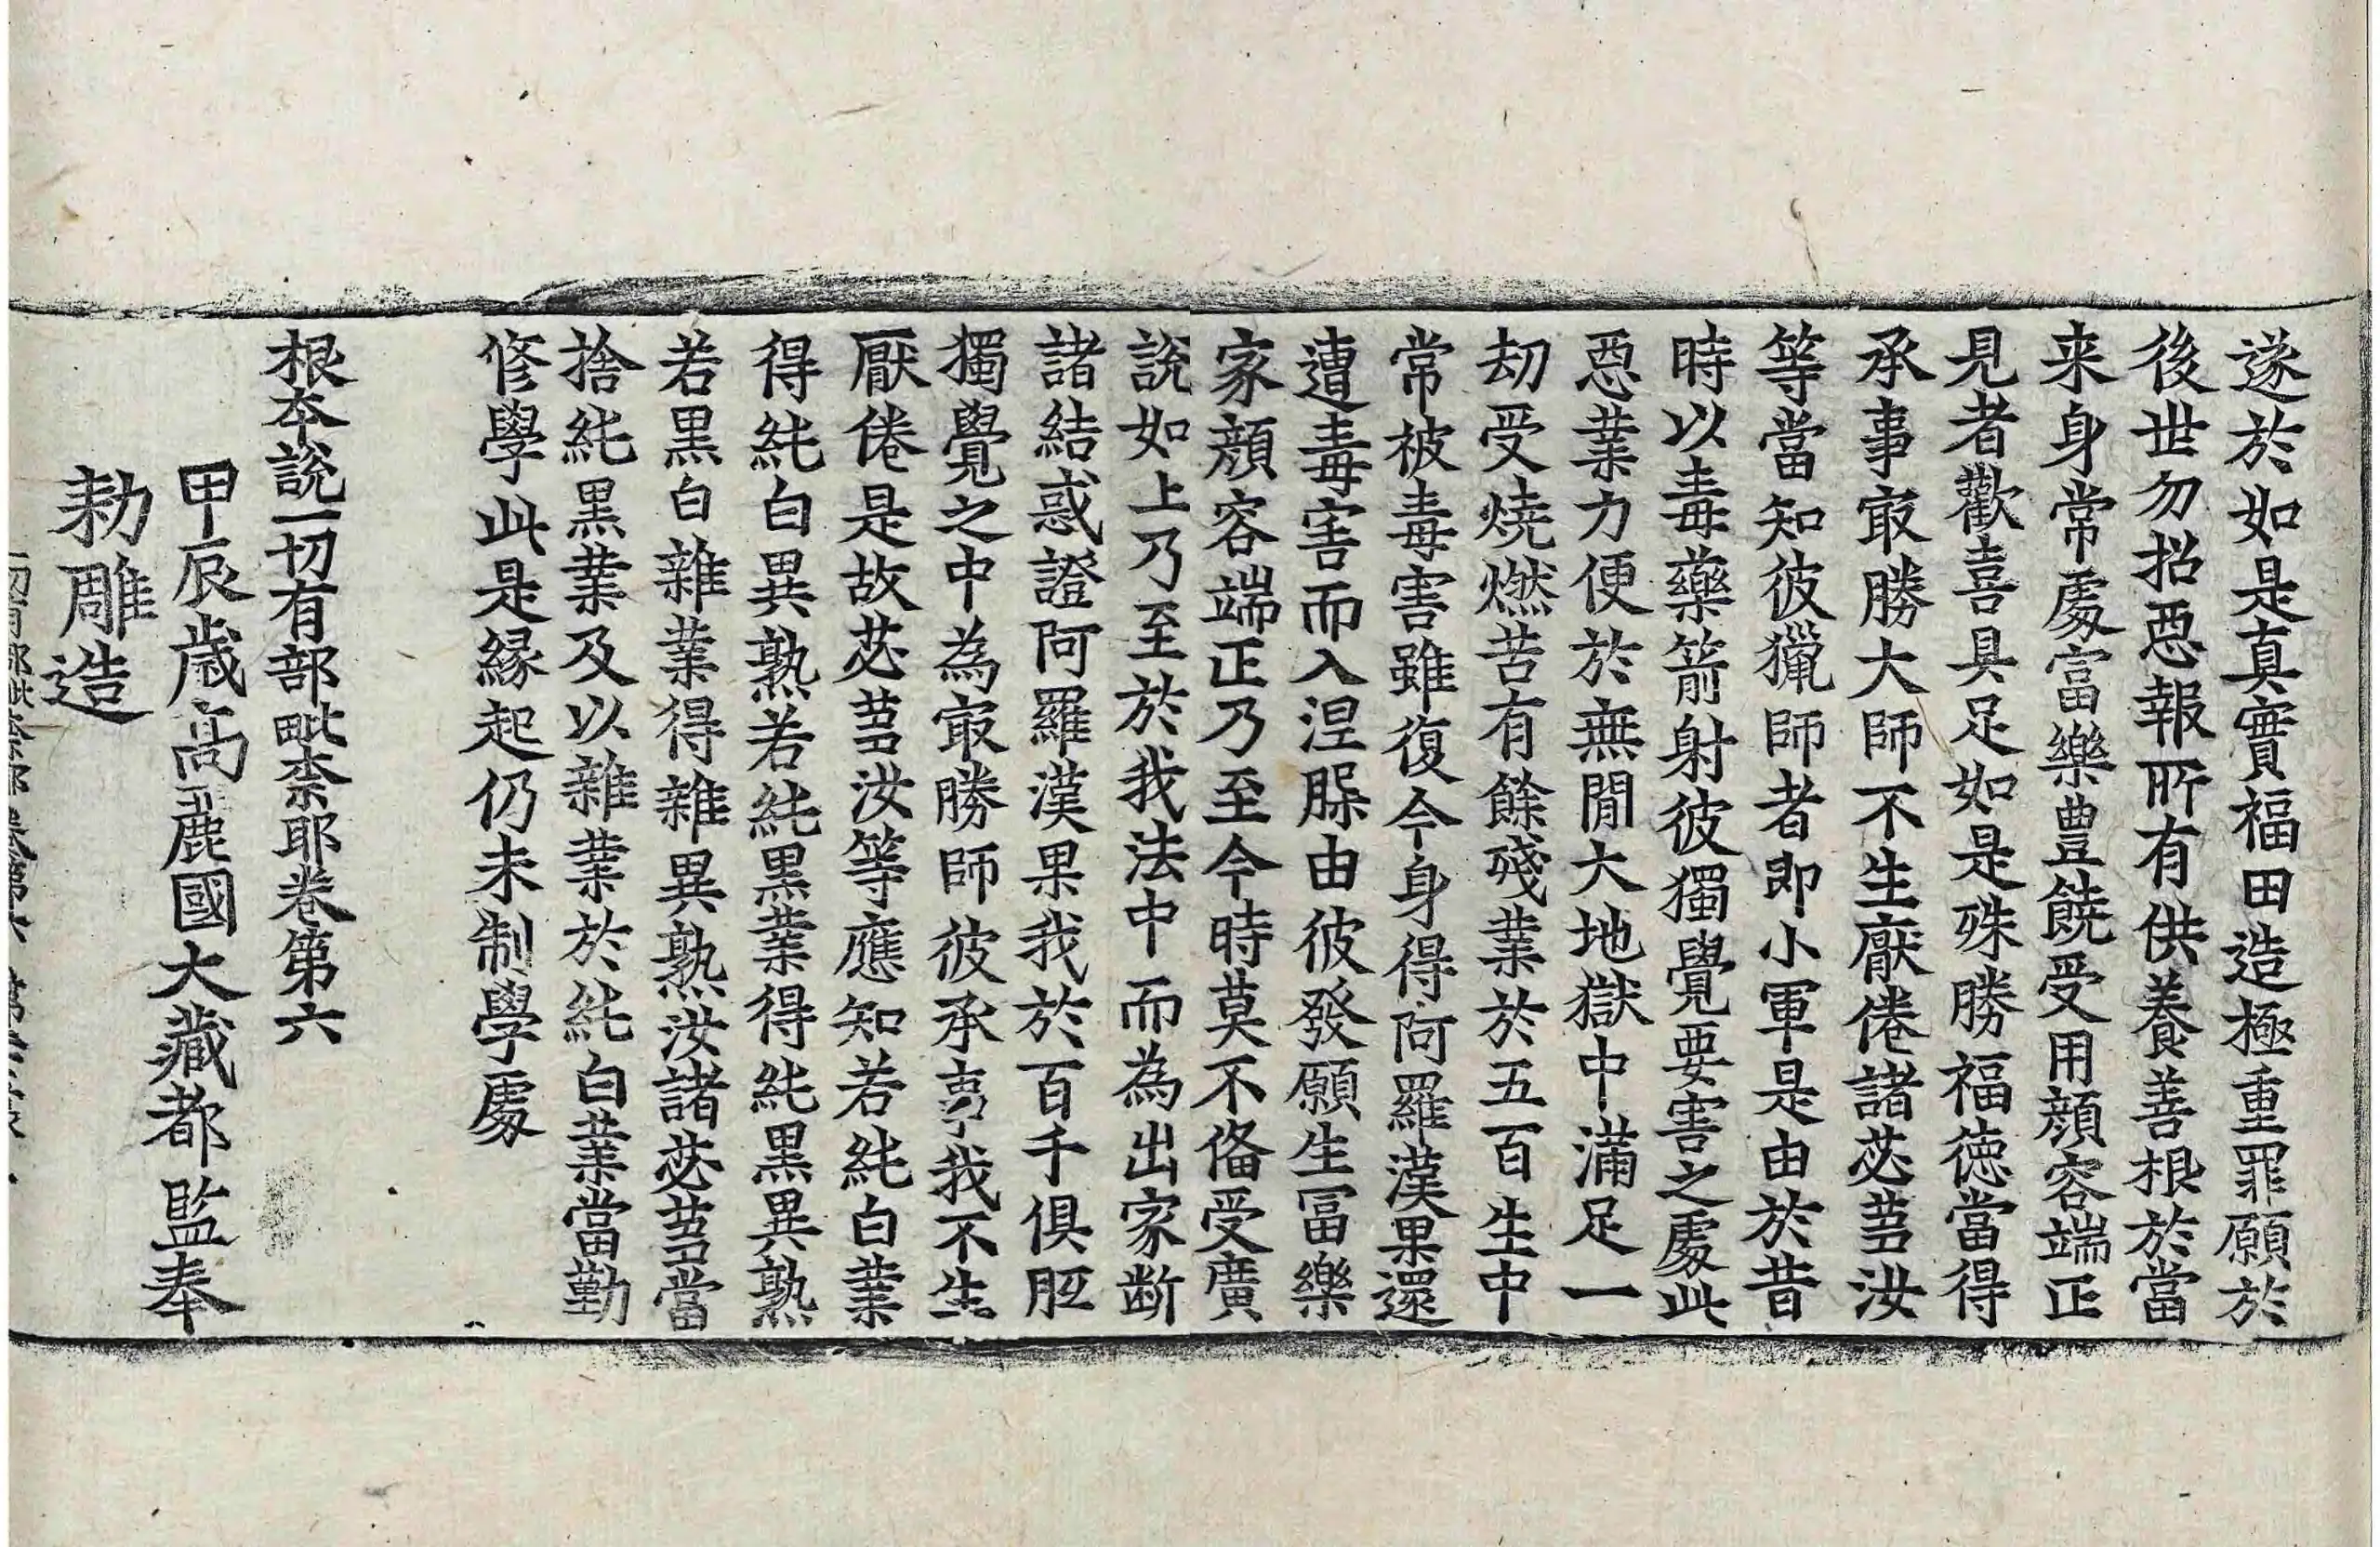 遂於如是真實福田造極重罪願於
後世勿招惡報所有供養善根於當
来身常處富樂豊饒受用顔容端正
見者歡喜具足如是殊勝福德當得
承事㝡勝大師不生厭倦諸苾芻汝
等當知彼獵師者即小軍是由於昔
時以毒藥箭射彼獨覺要害之處此
惡業力便於無間大地獄中滿足一
劫受燒燃苦有餘殘業於五百生中
常被毒害雖復今身得阿羅漢果還
遭毒害而入涅槃由彼發願生冨樂
家顔容端正乃至今時莫不俻受廣
說如上乃至於我法中而為出家断
諸結惑證阿羅漢果我於百千俱胝
獨覺之中為㝡勝師彼承事我不生
厭倦是故苾芻汝等應知若純白業
得純白異熟若純黑業得純黑異熟
若黑白雜業得雜異熟汝諸苾芻當
捨純黑業及以雜業於純白業當勤
修學此是緣起仍未制學處
根本說一切有部毗奈耶卷第六
甲辰歲高麗國大藏都監奉
勑雕造